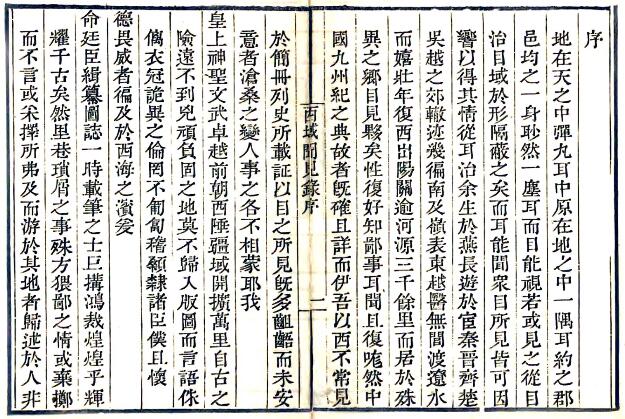 序
地在天之中彈丸耳中原在地之中一隅耳約之郡
邑均之一身眇然一塵耳而目能視若或見之從目
治目域於形隔蔽之矣而耳能聞眾目所見皆可因
響以得其情從耳治余生於燕長遊於宦秦晉齊楚
吳越之郊轍迹幾徧南及嶺表東越醫無閭渡遼水
而嬉壯年復西出陽關逾河源三千餘里而居於殊
異之鄉目見夥矣性復好知鄙事耳聞且復咙然中
國九州紀之典故者旣確且詳而伊吾以西不常見
西域聞見錄序
二
於簡冊列史所載証以目之所見旣多齟齬而未安
意者滄桑之變人事之各不相蒙耶我
皇上神聖文武卓越前朝西陲疆域開擴萬里自古之
險遠不到兇頑負固之地莫不歸入版圖而言語侏
儷衣冠詭異之倫罔不匍匐稽顙隸諸臣僕且懷
德畏威者徧及於西海之濱爰
命廷臣緝纂圖誌一時載筆之士巨搆鴻裁煌煌乎輝
耀千古矣然里巷瑣屑之事殊方猥鄙之情或棄擲
而不言或采擇所弗及而游於其地者歸述於人非